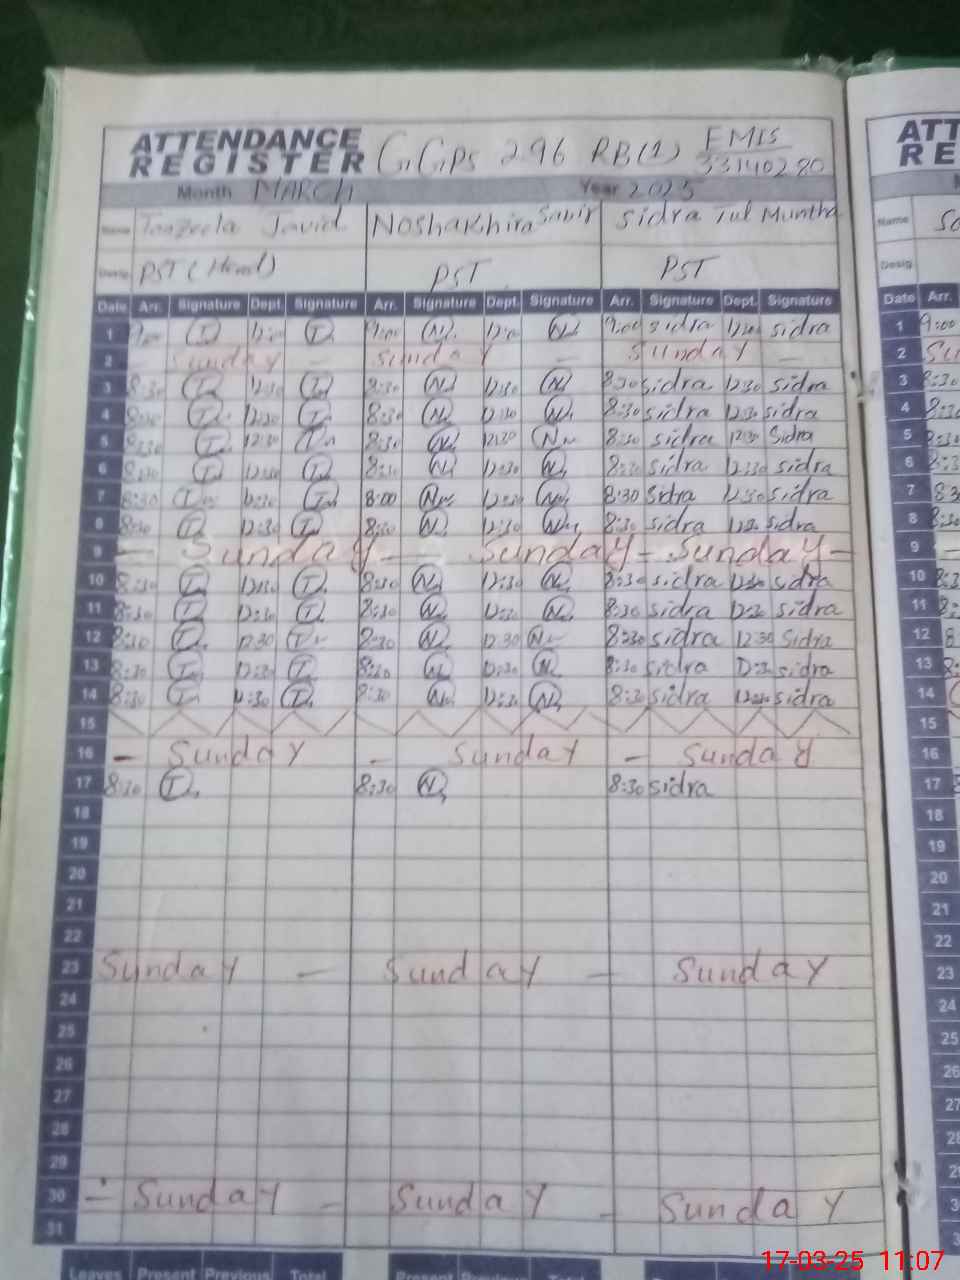 ATTENDANCE REGISTER G.G.PS 296 RB(1) EMIS 33140280
Month MARCH Year 2025
Name Tanzeela Javid Noshakhira Sabir Sidra Tul Muntha
Desig. PST (Head) PST PST
Date Arr. Signature Dept. Signature Arr. Signature Dept. Signature Arr. Signature Dept. Signature
1 9:00 T 12:00 T 9:00 N 12:00 N 9:00 sidra 12:00 sidra
2 - Sunday - Sunday - Sunday -
3 8:30 T 12:30 T 8:30 N 12:30 N 8:30 sidra 12:30 sidra
4 8:30 T 12:30 T 8:30 N 12:30 N 8:30 sidra 12:30 sidra
5 8:30 T 12:30 T 8:30 N 12:30 N 8:30 sidra 12:30 Sidra
6 8:30 T 12:30 T 8:30 N 12:30 N 8:30 sidra 12:30 sidra
7 8:30 T 12:30 T 8:00 N 12:30 N 8:30 Sidra 12:30 sidra
8 8:30 T 12:30 T 8:30 N 12:30 N 8:30 sidra 12:30 sidra
9 - Sunday - Sunday - Sunday -
10 8:30 T 12:30 T 8:30 N 12:30 N 8:30 sidra 12:30 sidra
11 8:30 T 12:30 T 8:30 N 12:30 N 8:30 sidra 12:30 sidra
12 8:30 T 12:30 T 8:30 N 12:30 N 8:30 sidra 12:30 Sidra
13 8:30 T 12:30 T 8:30 N 12:30 N 8:30 sidra 12:30 sidra
14 8:30 T 12:30 T 8:30 N 12:30 N 8:30 sidra 12:30 sidra
15
16 - Sunday - Sunday - Sunday
17 8:30 T 8:30 N 8:30 sidra
18
19
20
21
22
23 Sunday - Sunday - Sunday
24
25
26
27
28
29
30 - Sunday - Sunday - Sunday
31
Leaves Present Previous Total Present Total
ATT
RE
Name
Desig.
Date Arr.
1 9:00
2
3 8:30
4 8:30
5 8:30
6 8:3
7 8:3
8 8:30
9
10 8:3
11 8:3
12 8
13
14
15
16
17
18
19
20
21
22
23
24
25
26
17-03-25 11:07